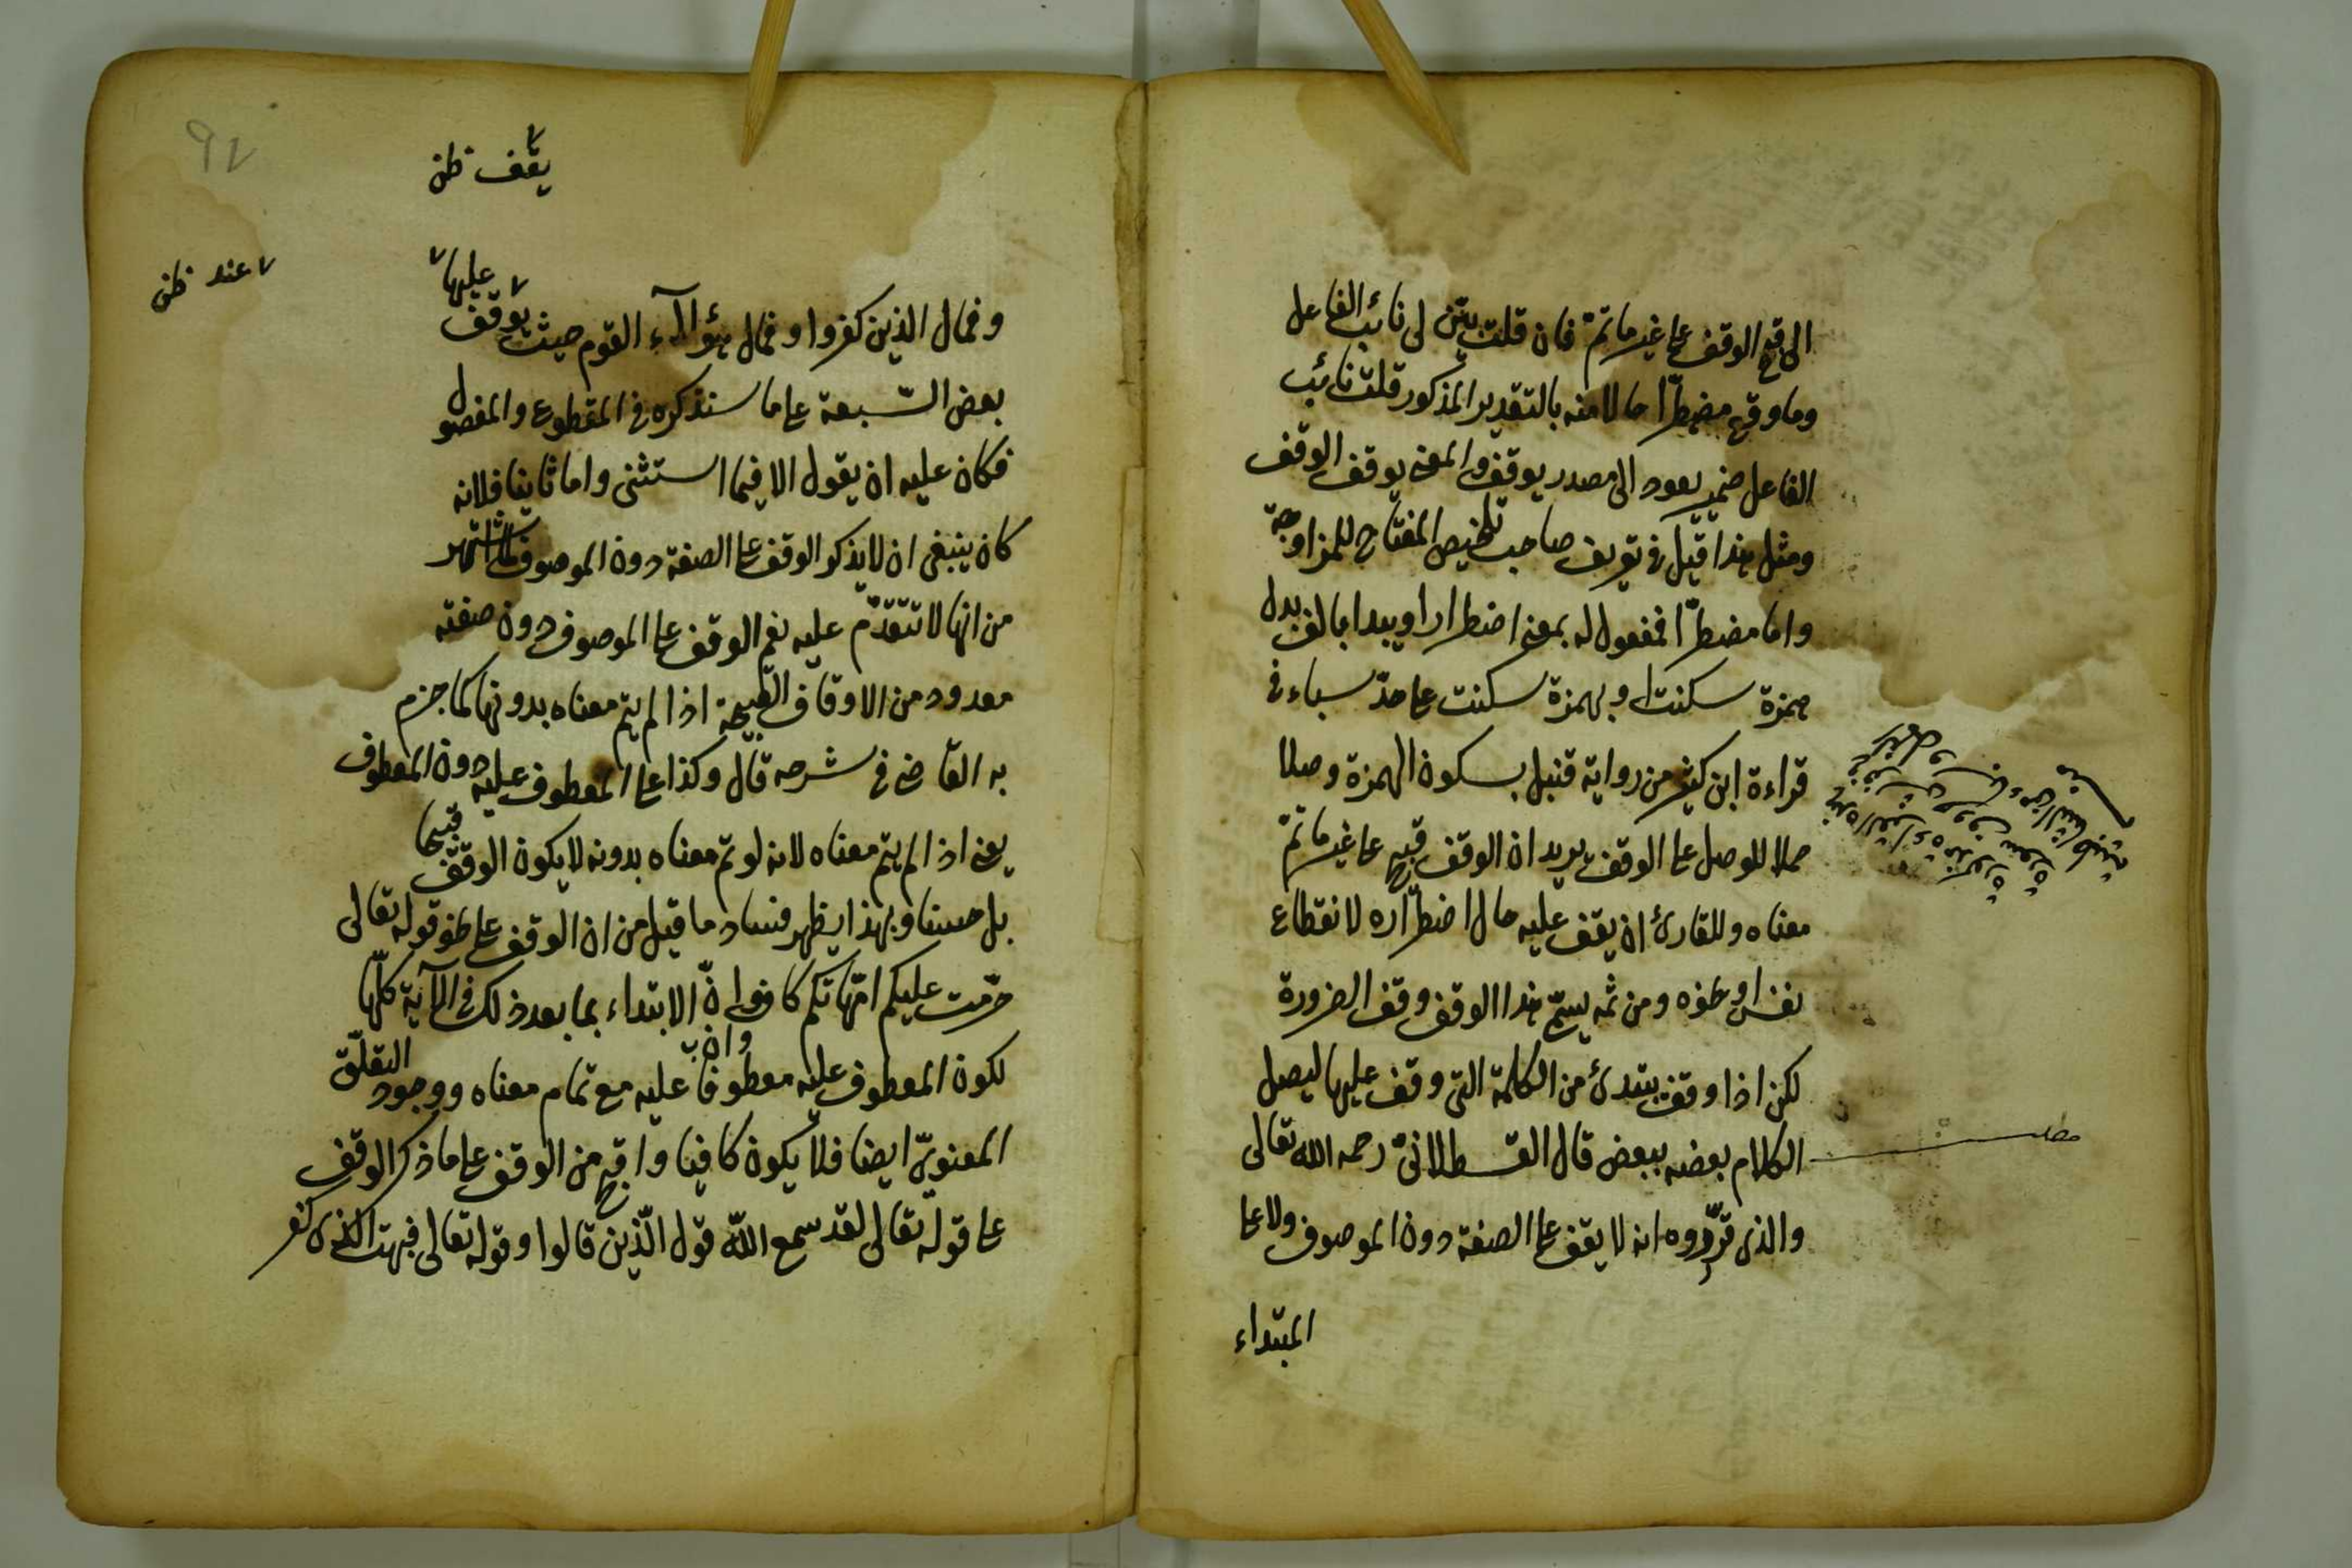 الى قبح الوقف على غير ما تمّ فان قلت بيّن لى نائب الفاعل
وما وقع مضطرّا حالا منه بالتقدير المذكور قلت نائب
الفاعل ضمير يعود الى مصدر يوقف والمعنى يوقف الوقف
ومثل هذا قيل فى تعريف صاحب تلخيص المفتاح للمزاوجة
واما مضطرّا فمفعول له بمعنى اضطرارا ويبدا بالف بدل
همزة سكنت او بهمزة سكنت على حدّ سباء فى
قراءة ابن كثير من رواية قنبل بسكون الهمزة وصلا
حملا للوصل على الوقف يريد ان الوقف قبيح على غير ما تمّ
معناه وللقارئ ان يقف عليه حال اضطراره لانقطاع
نفس او نحوه ومن ثمه يسمّى هذا الوقف وقف الضرورة
لكن اذا وقف يبتدئ من الكلمة التى وقف عليها ليصل
الكلام بعضه ببعض قال القسطلانىّ رحمه الله تعالى
والذى قرّروه انه لا يقف على الصفة دون الموصوف ولا على
المبتداء
مطلب
يقف ظن
عند ظن
عليها
وفمال الذين كفروا وفمال هؤلآء القوم حيث يوقف
بعض السّبعة على ما سنذكره فى المقطوع والمفصول
فكان عليه ان يقول الا فيما استثنى واما ثانيا فلانه
كان ينبغى ان لا يذكر الوقف على الصفة دون الموصوف لما اشتهر
من انها لا تتقدّم عليه نعم الوقف على الموصوف دون صفته
معدود من الاوقاف القبيحة اذا لم يتم معناه بدونها كما جزم
به القاضى فى شرحه قال وكذا على المعطوف عليه دون المعطوف
يعنى اذا لم يتم معناه لانه لو تم معناه بدونه لا يكون الوقف قبيحا
بل حسنا وبهذا يظهر فساد ما قيل من ان الوقف على نحو قوله تعالى
حرّمت عليكم امّهاتكم كاف وانّ الابتداء بما بعد ذلك فى الآية كلّها
لكون المعطوف عليه معطوفا عليه مع تمام معناه ووجود التعلّق
المعنوىّ ايضا فلا يكون كافيا واقبح من الوقف على ما ذكر الوقف
على قوله تعالى لقد سمع الله قول الّذين قالوا وقوله تعالى فبهت الذى كفر
92